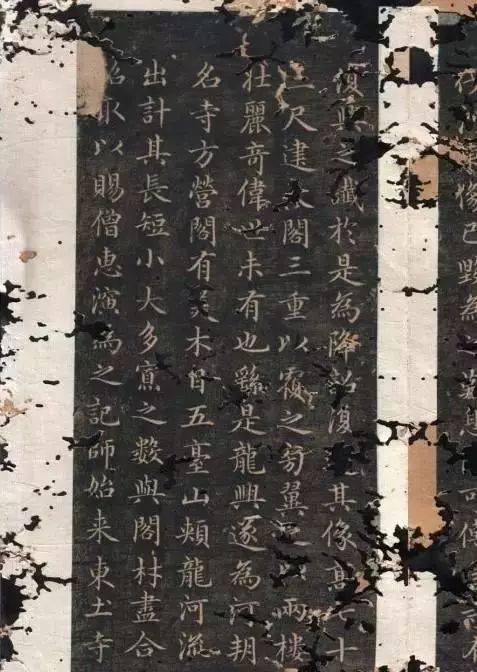 像已毀為之
復興之讖於是為降詔復其像十
三尺建閣三重以覆之旁翼之兩樓
壯麗奇偉世未有也繇是龍興遂為河朔
名寺方營閣有美木自五臺山頰龍河流
出計其長短小大多寡之數與閣材盡合
取以賜僧惠演為之記師始来東土寺